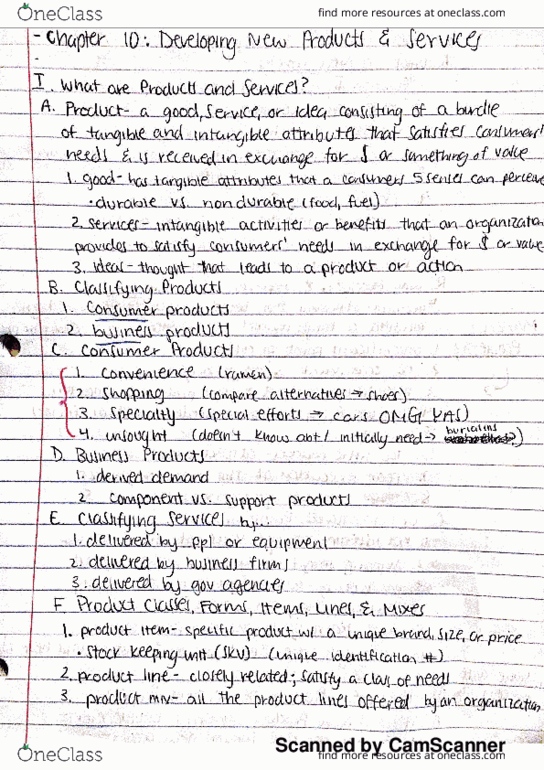 OneClass
find more resources at oneclass.com
- Chapter 10: Developing New Products & Services
I. What are Products and Services?
A. Product- a good, service, or idea consisting of a bundle
of tangible and intangible attributes that satisfies consumers'
needs & is received in exchange for $ or something of value
1. good- has tangible attributes that a consumers 5 senses can perceive
• durable vs. nondurable (food, fuel)
2. services- intangible activities or benefits that an organization
provides to satisfy consumers' needs in exchange for $ or value
3. ideas- thought that leads to a product or action
B. Classifying Products
1. Consumer products
2. business products
C. Consumer Products
1. convenience (ramen)
2. shopping (compare alternatives → shoes)
3. specialty (special efforts → cars OMG YAS)
4. unsought (doesn't know abt / initially need→ burialins )
D. Business Products
1. derived demand
2. component vs. support products
E. Classifying Services by:
1. delivered by ppl or equipment
2. delivered by business firms
3. delivered by gov agencies
F. Product Classes, Forms, Items, Lines, & Mixes
1. product item- specific product w/ a unique brand, size, or price
• Stock keeping unit (SKU) (unique identification #)
2. product line- closely related; satisfy a class of needs
3. product mix- all the product lines offered by an organization
Scanned by CamScanner
OneClass
find more resources at oneclass.com